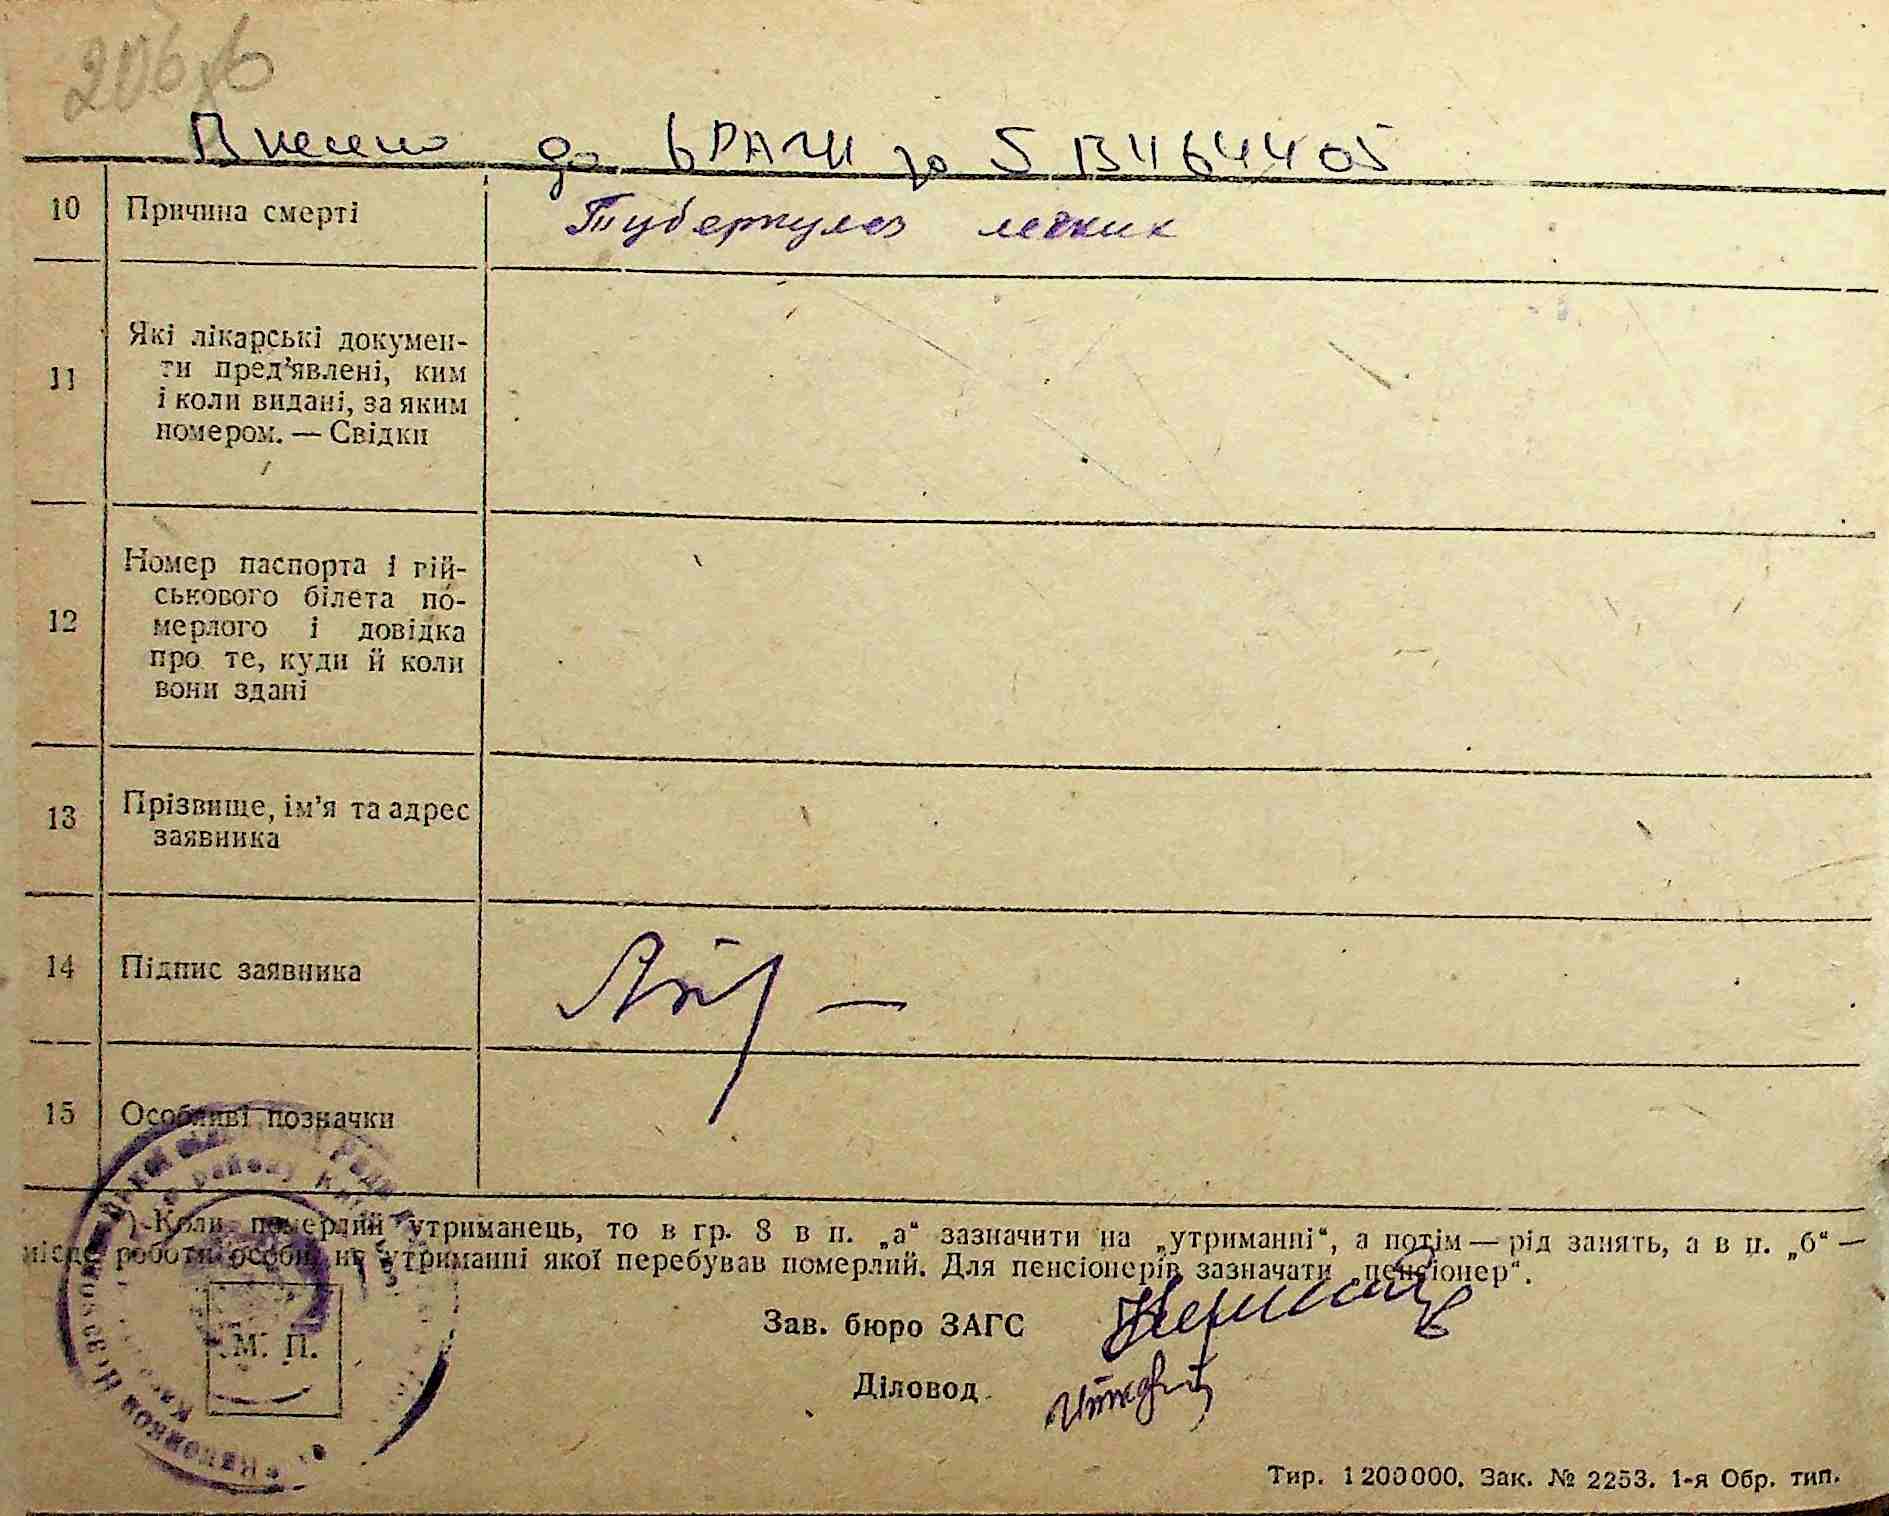 Внесено до
10 Причина смерті Туберкулез легких
11 Які лікарські докумен-
ти пред’явлені, ким
і коли видані, за яким
номером. — Свідки
12 Номер паспорта і вій-
ськового білета по-
мерлого і довідка
про те, куди й коли
вони здані
13 Прізвище, ім’я та адрес
заявника
14 Підпис заявника
15 Особливі позначки
Коли померлий утриманець, то в гр. 8 в п. „а“ зазначити на „утриманні“, а потім — рід занять, а в п. „б“ —
місце роботи особи, на утриманні якої перебував померлий. Для пенсіонерів зазначати „пенсіонер“.
Зав. бюро ЗАГС
М. П.
Діловод
Тир. 1200000. Зак. № 2253. 1-я Обр. тип.